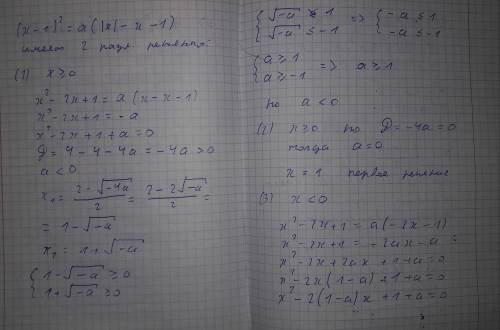 (x-1)² = a(|x| - x - 1)
имеет 2 решения
(1) x ≥ 0
x² - 2x + 1 = a(x - x - 1)
x² - 2x + 1 = -a
x² - 2x + 1 + a = 0
D = 4 - 4 - 4a = -4a > 0
a < 0
x₁ = (2 - √-4a)/2 = (2 - 2√-a)/2 =
= 1 - √-a
x₂ = 1 + √-a
{ 1 - √-a ≥ 0
{ 1 + √-a ≥ 0
{ √-a ≤ 1 => { -a ≤ 1
{ √-a ≤ -1 { -a ≤ -1
{ a ≥ 1
{ a ≥ -1 => a ≥ 1
но a < 0
(2) x ≥ 0 но D = -4a = 0
тогда a = 0
x = 1 первое решение
(3) x < 0
x² - 2x + 1 = a(-2x - 1)
x² - 2x + 1 = -2ax - a
x² - 2x + 2ax + 1 + a = 0
x² - 2x(1-a) + 1 + a = 0
x² - 2(1-a)x + 1 + a = 0